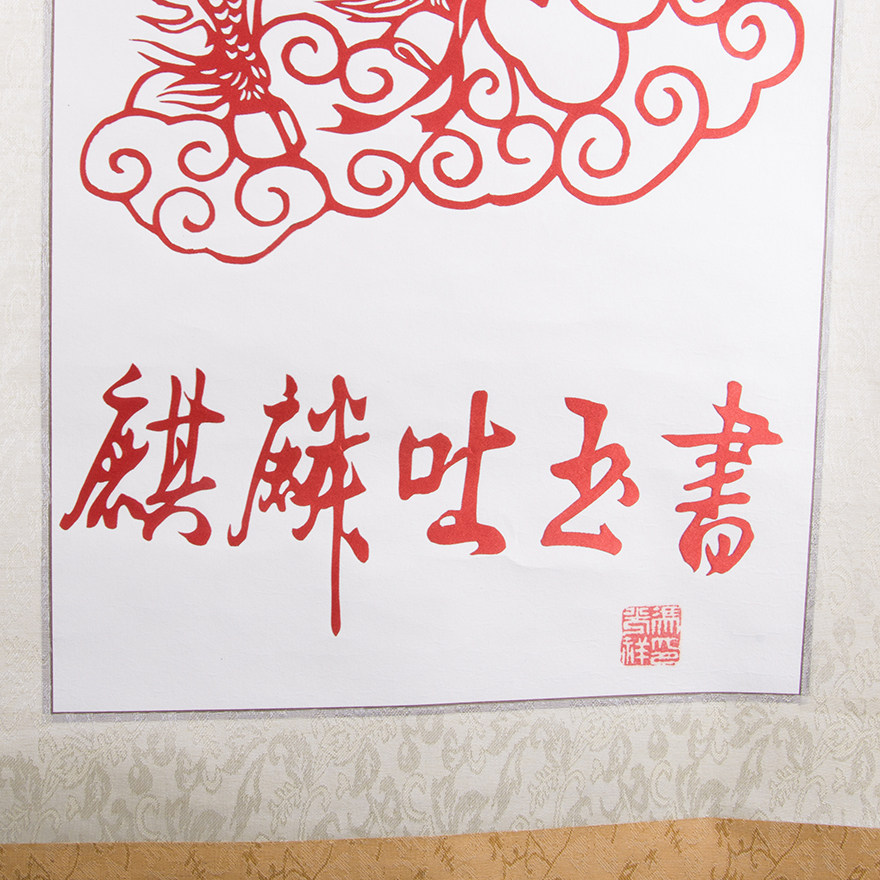 麒麟吐玉書